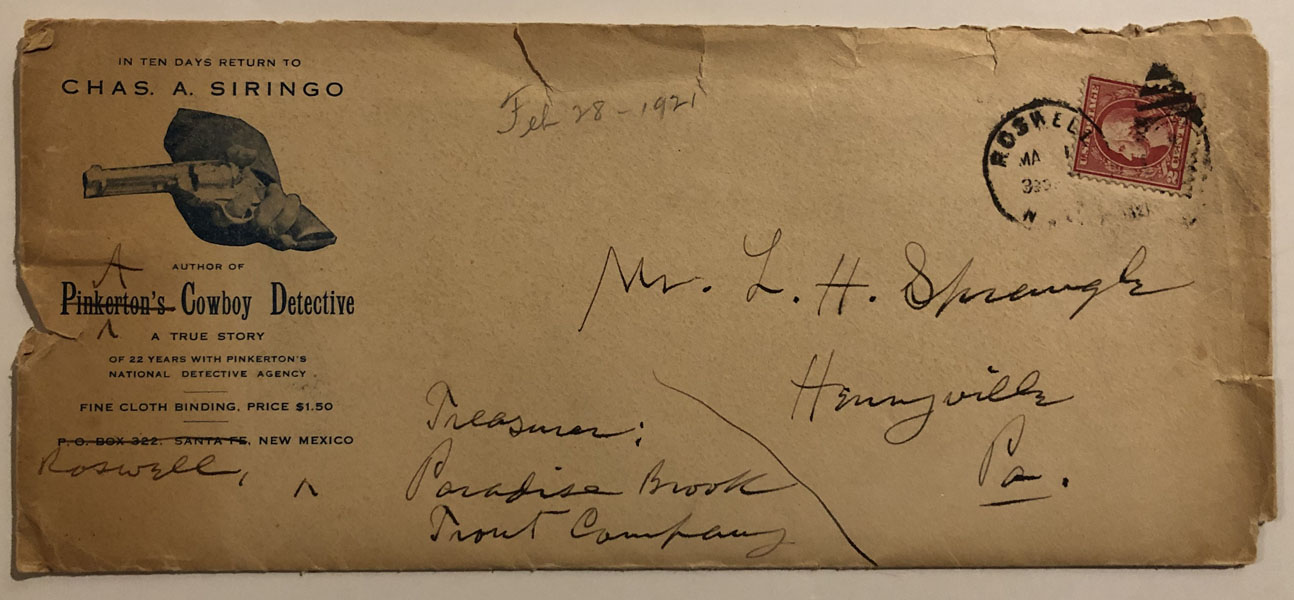 IN TEN DAYS RETURN TO
CHAS. A. SIRINGO
AUTHOR OF
A
Pinkerton's Cowboy Detective
A TRUE STORY
OF 22 YEARS WITH PINKERTON'S
NATIONAL DETECTIVE AGENCY
FINE CLOTH BINDING, PRICE $1.50
P. O. BOX 322, SANTA FE, NEW MEXICO
Roswell,
Feb 28-1921
ROSWELL
MA
U.S. POSTAGE
2 CENTS
Mr. L. H. Sprangle
Henryville
Pa.
Treasurer:
Paradise Brook
Trout Company